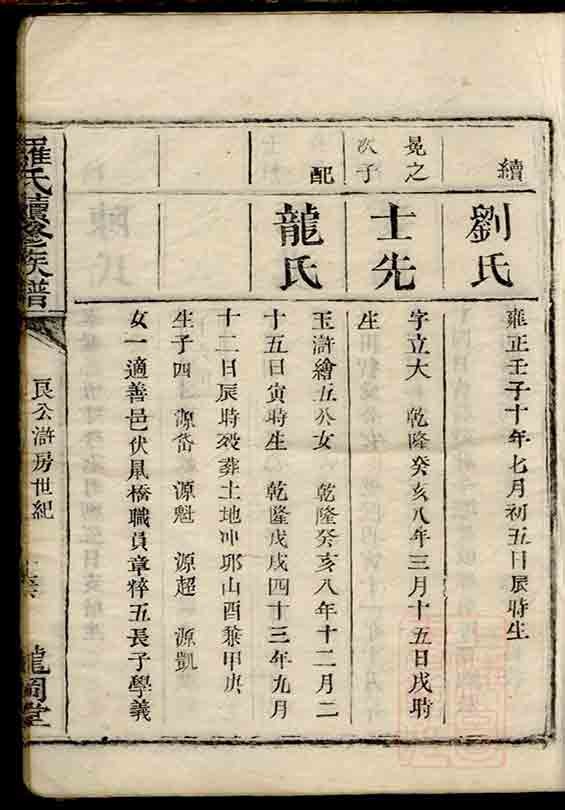 續
劉氏
雍正壬子十年七月初五日辰時生
冕之次子
士先
字立大 乾隆癸亥八年三月十五日戌時
生
配
龍氏
玉滸繪五公女 乾隆癸亥八年十二月二
十五日寅時生 乾隆戊戌四十三年九月
十二日辰時歿葬土地冲邛山酉兼甲庚
生子四 源岱 源魁 源超 源凱
女一適善邑伏鳳橋職員章粹五長子學義
羅氏續修族譜
良公滸房世紀
龍岡堂